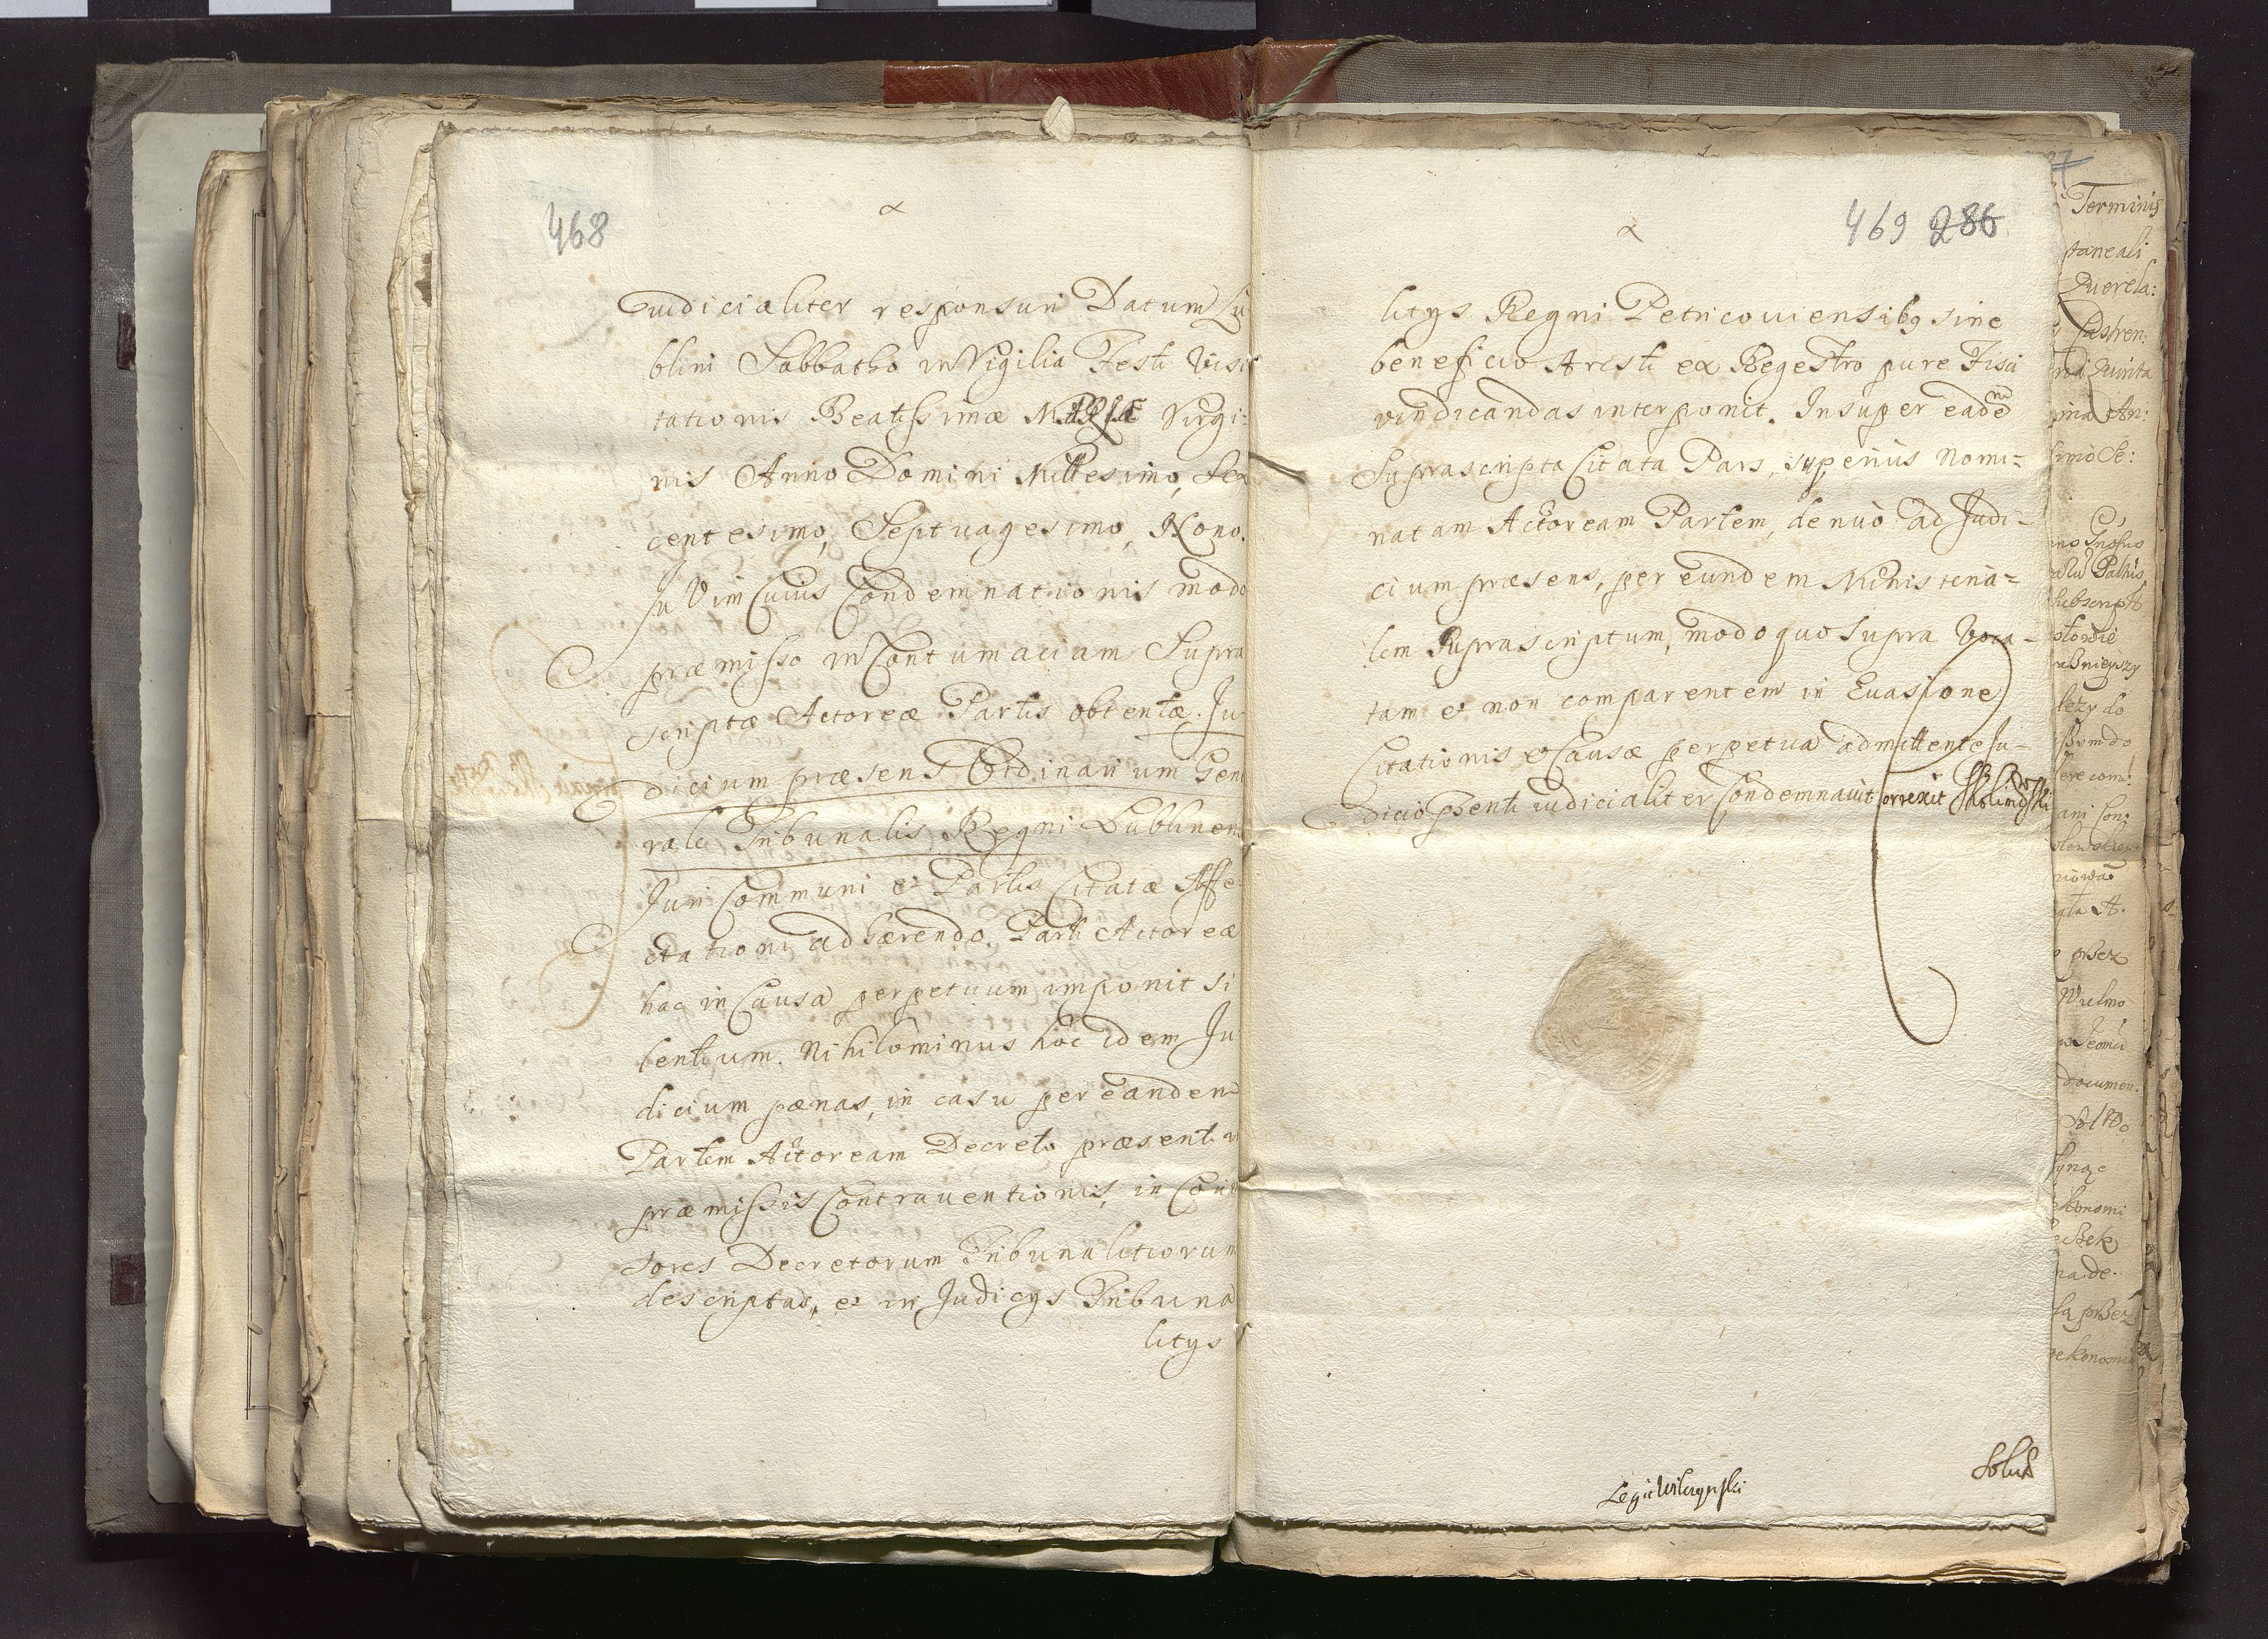 468
iudicialiter responsuri Datum Lu
blini Sabbatho in Vigilia Festi Visi
tationis Beatissimæ Mariæ Virgi:
nis Anno Domini Millesimo, Sex
centesimo, Septuagesimo, Nono.
In Vim Cuius Condemnationis modo
præmisso in Contumaciam Supra
scriptæ Actoreæ Partis obtentæ. Ju
dicium præsens Ordinarium Gene
rale Tribunalis Regni Lublinen
Juri Communi et Partis Citatæ Affe
ctationi adhærendo. Parti Actoreæ
hac in Causa perpetuum imponit si
lentium. Nihilominus hoc idem Ju
dicium pænas, in casu per eandem
Partem Actoream Decreto præsenti in
præmissis Contraventionis, in
sores Decretorum Tribunalitiorum
descriptas, et in Judicys Tribuna
litys
469 286
litys Regni Petricouiensibq sine
beneficio Aresti ex Regestro pure Fisci
vindicandas interponit. Insuper eadem
Suprascripta Citata Pars, superiùs Nomi=
natam Actoream Partem, denuò ad Judi-
cium præsens, per eundem Ministeria=
lem Suprascriptum, modo quo supra Voca-
tam et non comparentem in Euasione
Citationis et Causæ perpetua admittente Ju-
dicio pñenti iudicialiter Condemnauit Correxit
Legit
27
Terminis
taneali
Querela:
Castren:
Quinta
An:
Subscript
do
Con:
przez
Wielmo
documen: